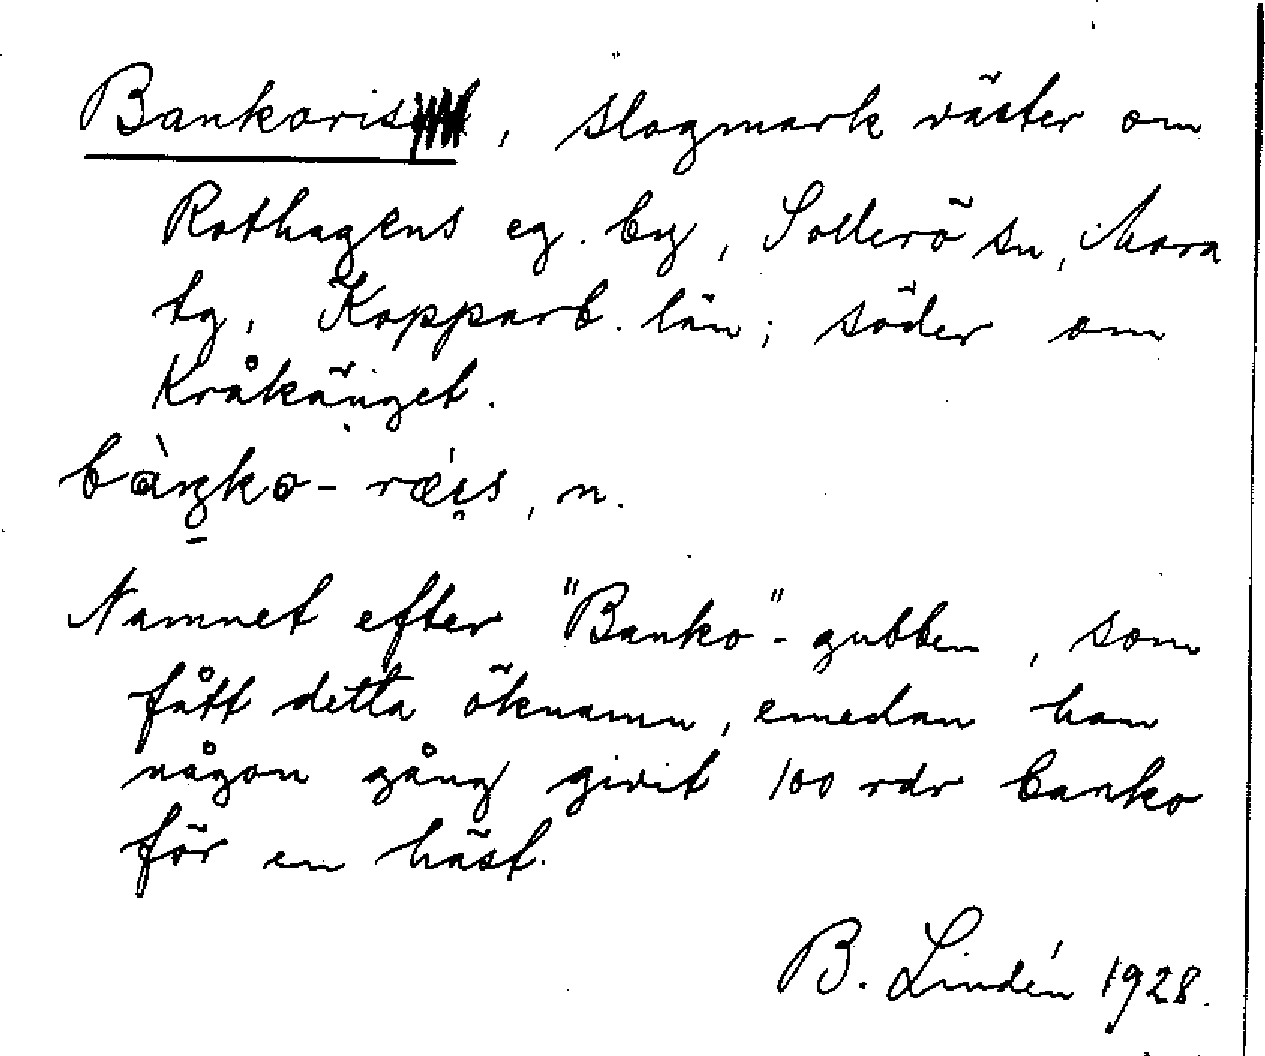 Bankoris, slogmark väster om
Rothagens eg. by, Sollerö sn, Mora
tg, Kopparb. län; söder om
Kråkänget.
bàŋko-ræ´i̯s, n.
Namnet efter "Banko"-gubben, som
fått detta öknamn, emedan han
någon gång givit 100 rdr banko
för en häst.
B. Lindén 1928.